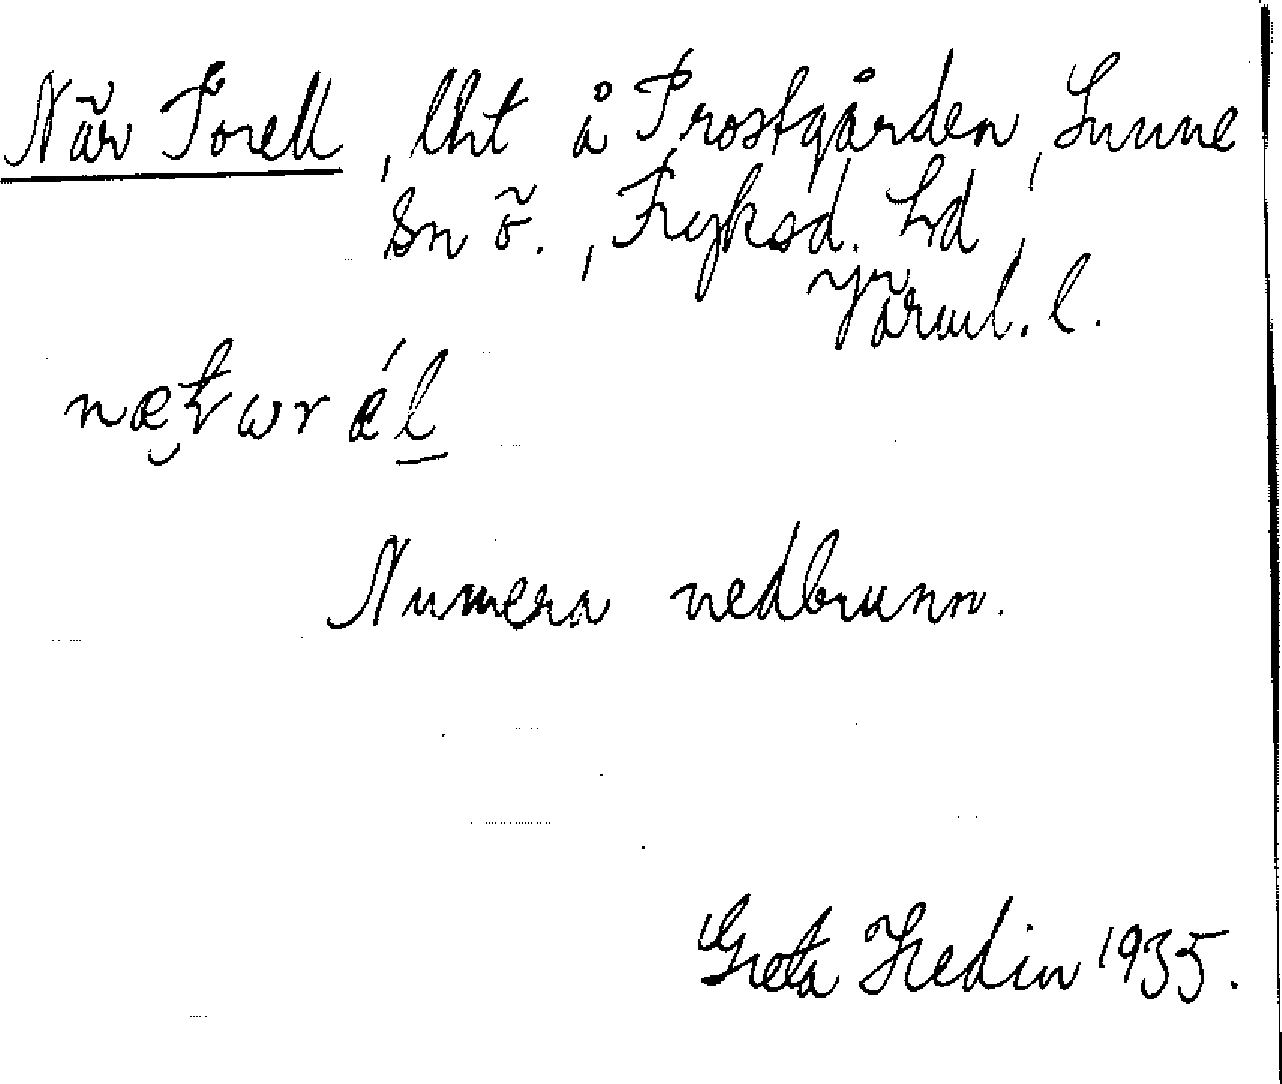 När Torell, lht å Prostgården, Sunne
Sn ö., Fryksd. Hd,
Värml. l.
Numera nedbrunn.
Greta Hedin 1935.